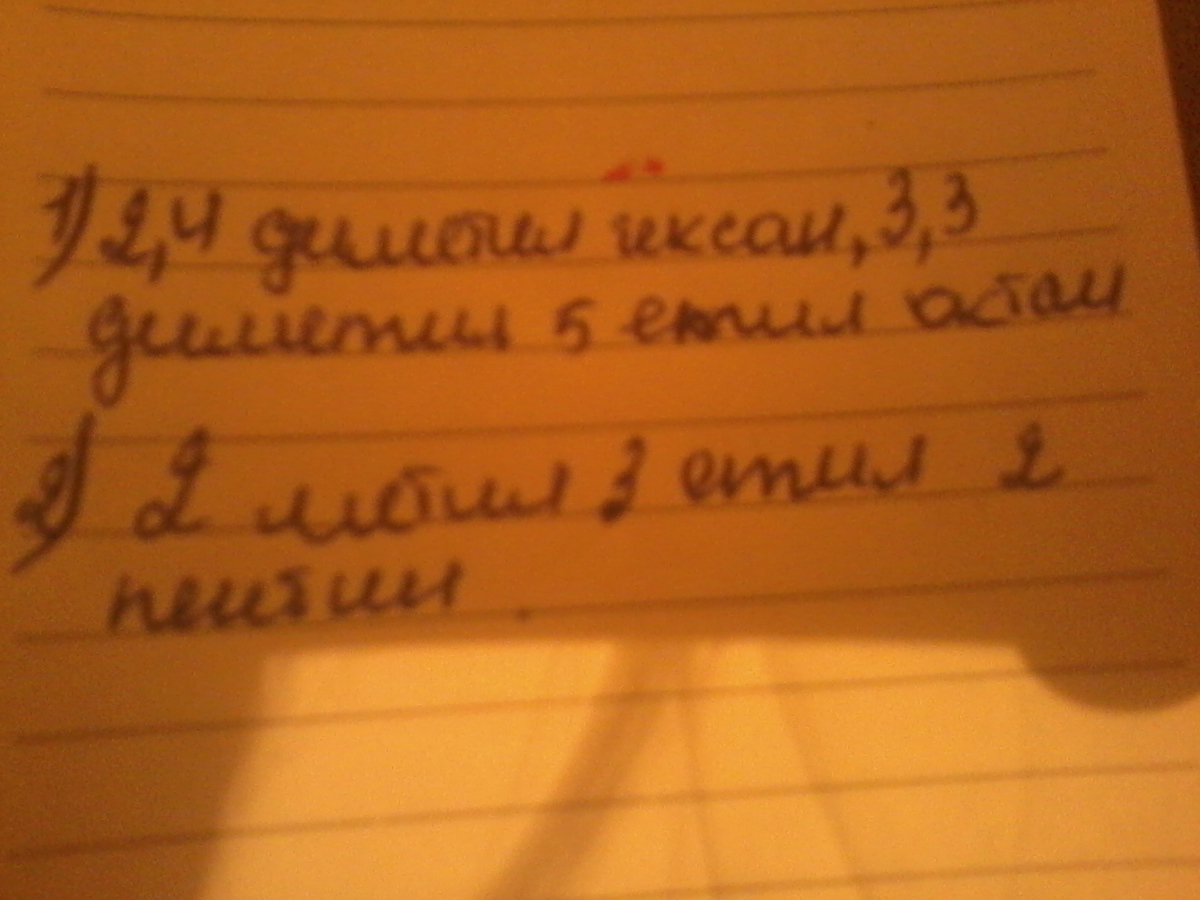 1) 2,4 диметил гексан, 3,3
диметил 5 етил октан
2) 2 метил 3 етил 2
пентин.